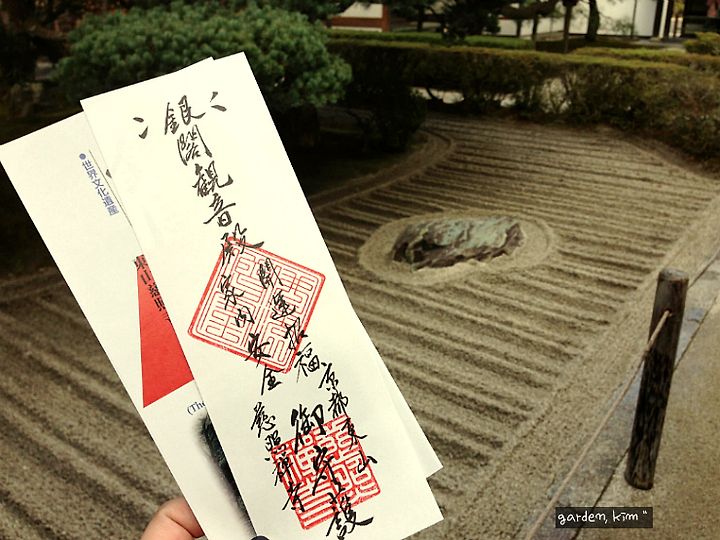 銀閣観音殿
開運招福
家内安全
京都東山
慈照禅寺
御守護
●世界文化遺産
(The
garden, kim "